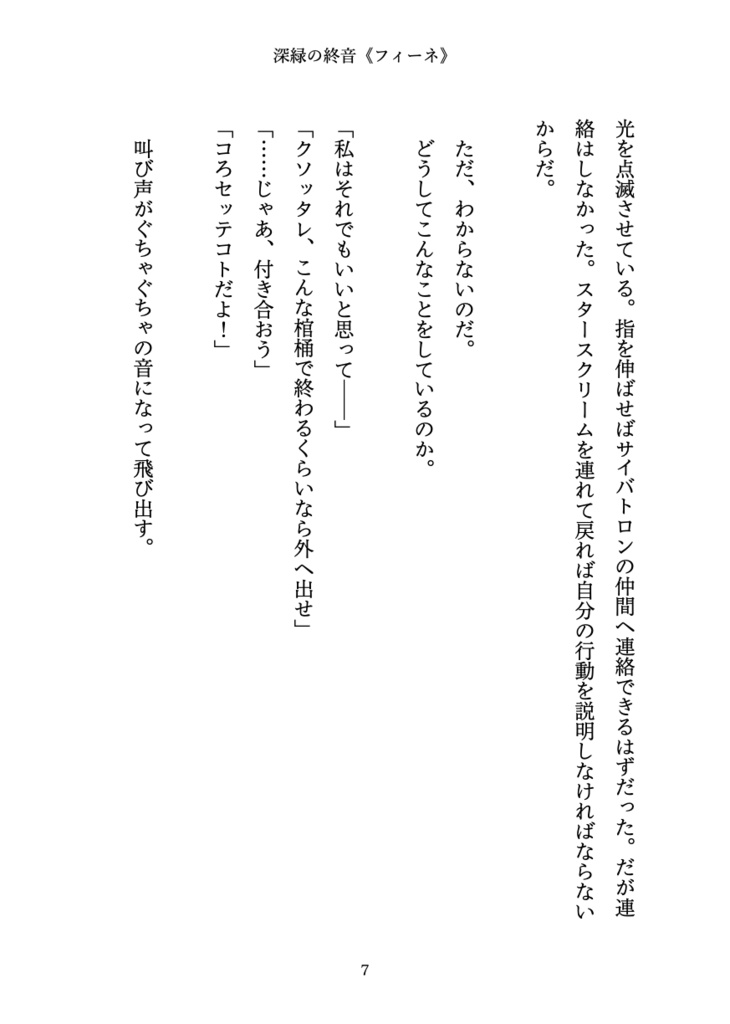 深緑の終音《フィーネ》
光を点滅させている。指を伸ばせばサイバトロンの仲間へ連絡できるはずだった。だが連
絡はしなかった。スタースクリームを連れて戻れば自分の行動を説明しなければならない
からだ。
ただ、わからないのだ。
どうしてこんなことをしているのか。
「私はそれでもいいと思って――」
「クソッタレ、こんな棺桶で終わるくらいなら外へ出せ」
「……じゃあ、付き合おう」
「コろセッテコトだよ！」
叫び声がぐちゃぐちゃの音になって飛び出す。
7